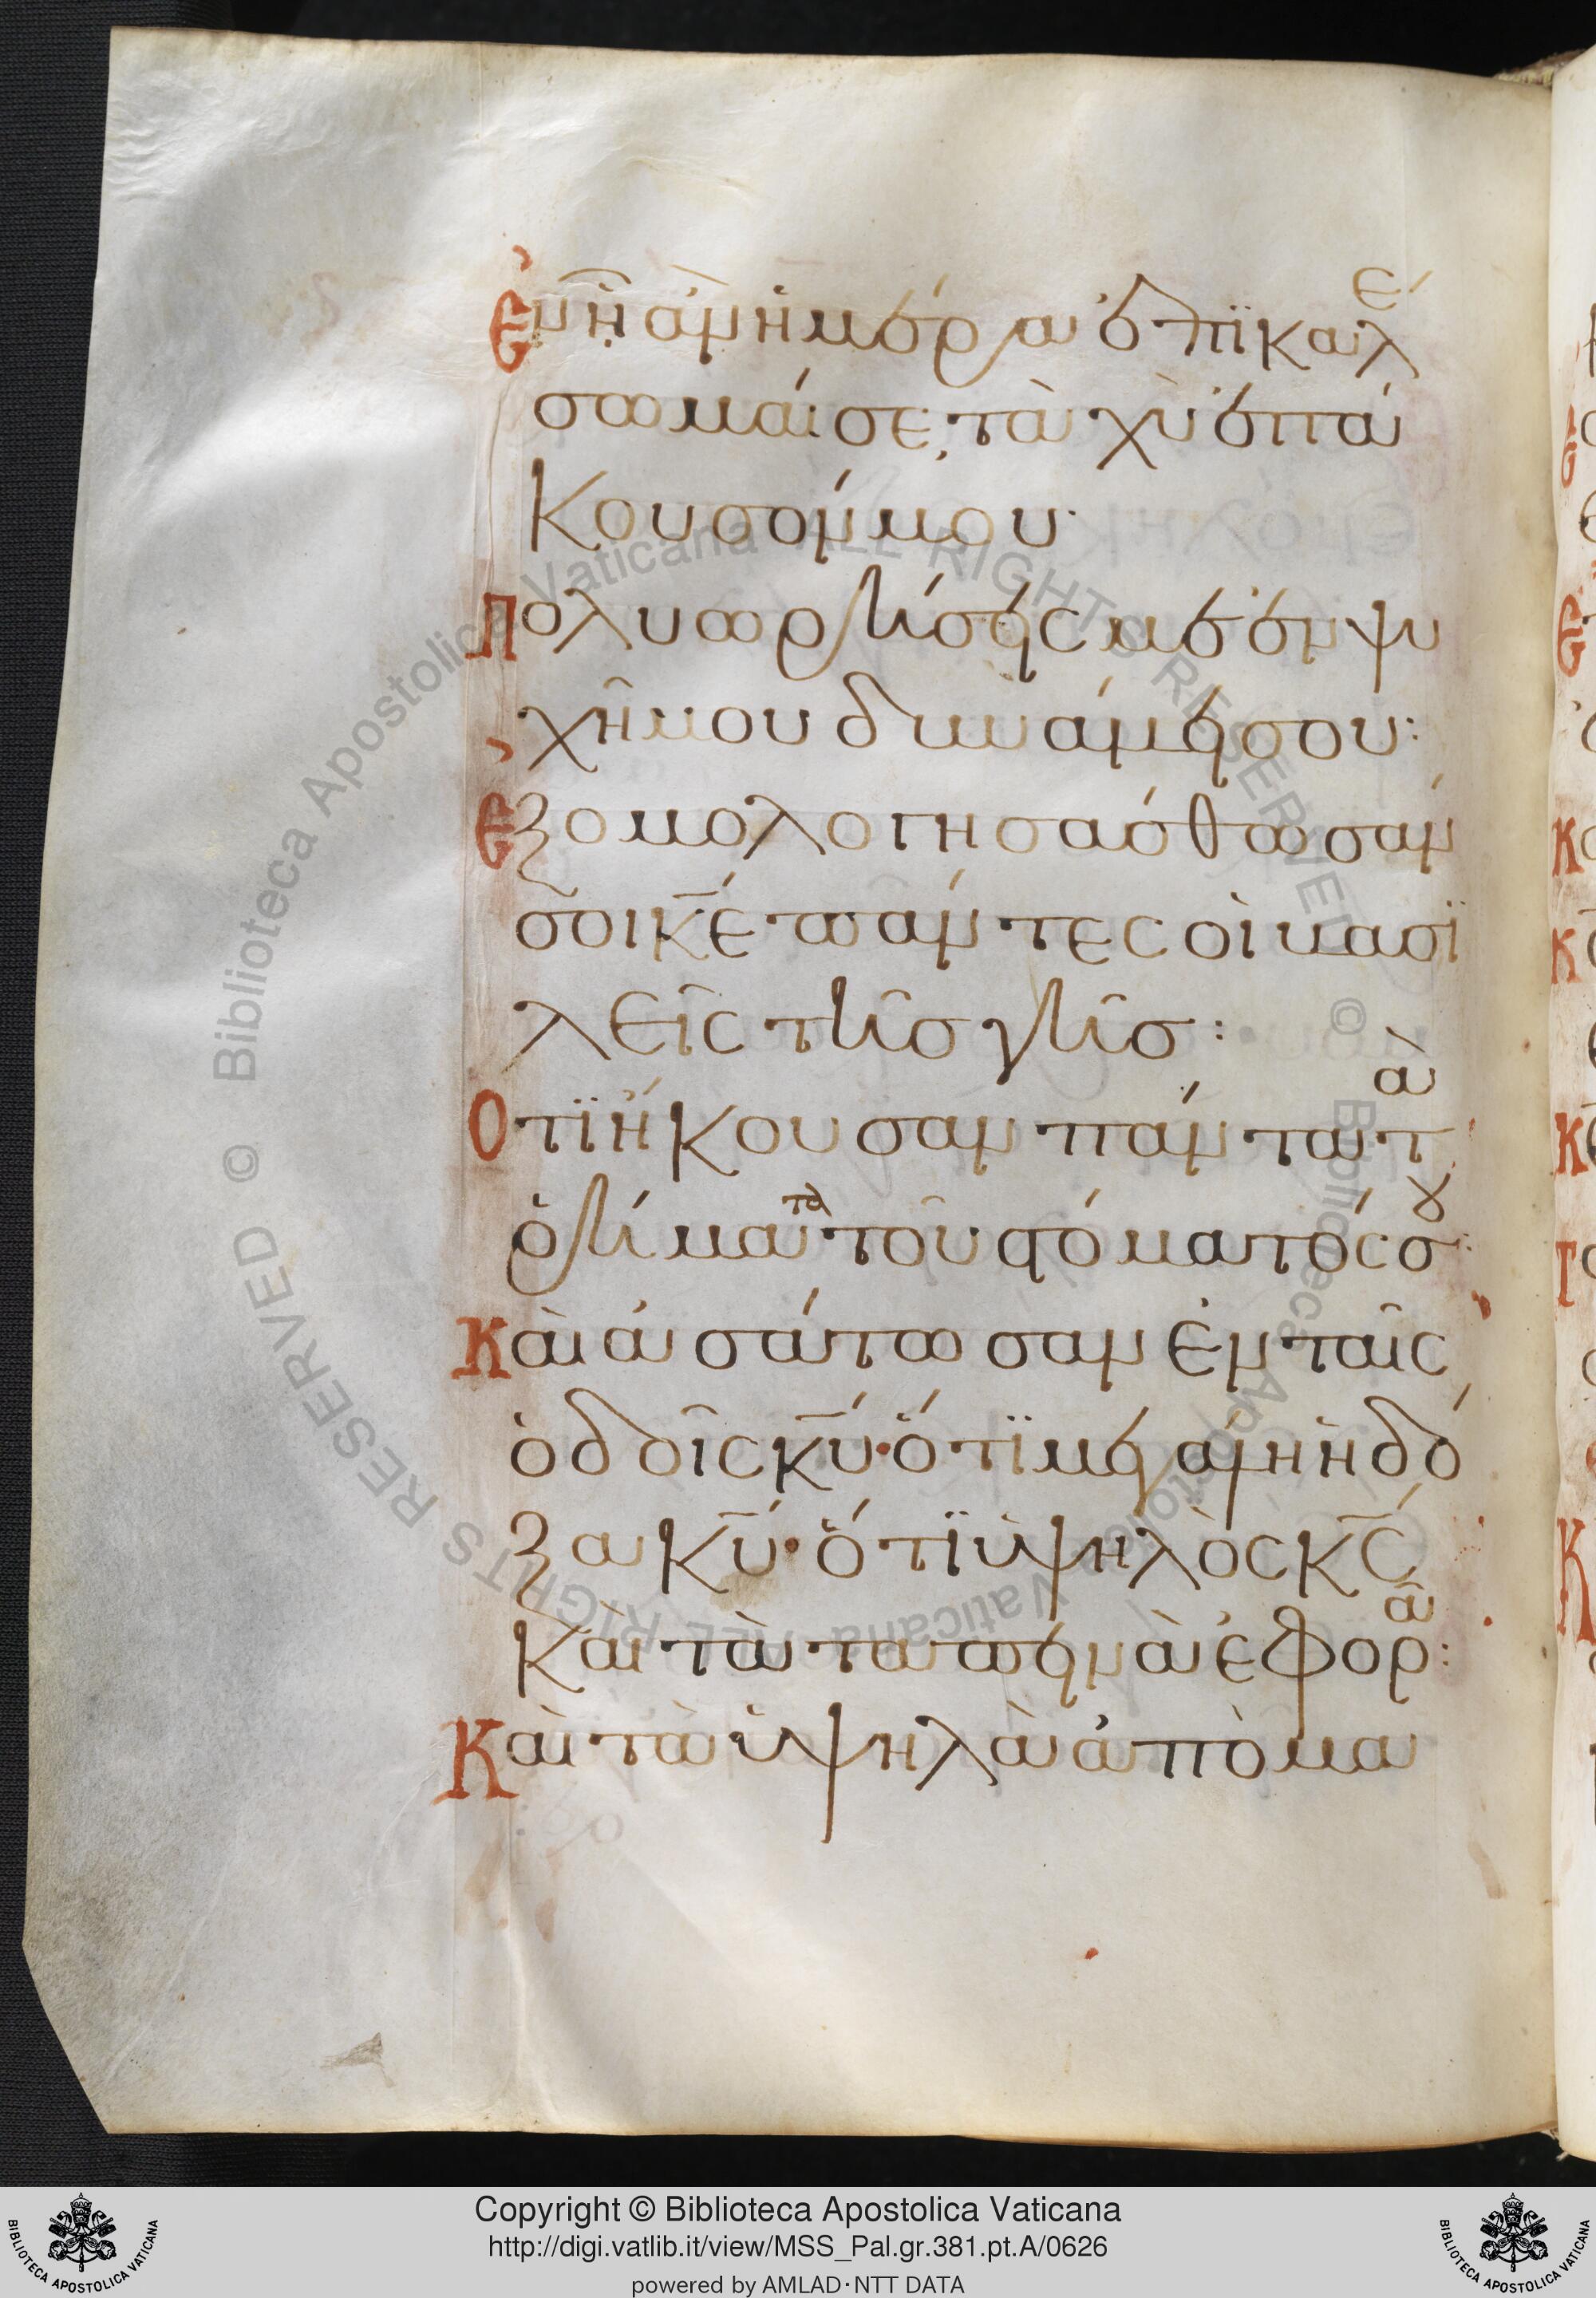 ἐν ᾗ ἂν ἡμέρα ἐπϊκαλέ
σωμαί σε, ταχὺ ἐπά
κουσόν μου·
Πολυωρήσεις με ἐν ψυ
χῆ μου δυνάμει σου:
ἐξομολογησάσθωσάν
σοι κ̅ε πάντες οἱ βασϊ
λεῖς τῆς γῆς:
Οτϊ ἤκουσαν πάντα τὰ
ῥήματα τοῦ στόματός σου:
Καὶ ἀσάτωσαν ἐν ταῖς
ὁδοῖς κ̅υ· ὅτϊ μεγάλη ἡ δό
ξα κ̅υ· ὅτϊ ὑψηλὸς κ̅ς
καὶ τὰ ταπεινὰ ἐφορᾶ:
Καὶ τὰ ὑψηλὰ ἀπὸ μα
Copyright © Biblioteca Apostolica Vaticana
http://digi.vatlib.it/view/MSS_Pal.gr.381.pt.A/0626
powered by AMLAD·NTT DATA
BIBLIOTECA APOSTOLICA VATICANA
BIBLIOTECA APOSTOLICA VATICANA
© Biblioteca Apostolica Vaticana ALL RIGHTS RESERVED © Biblioteca Apostolica Vaticana ALL RIGHTS RESERVED